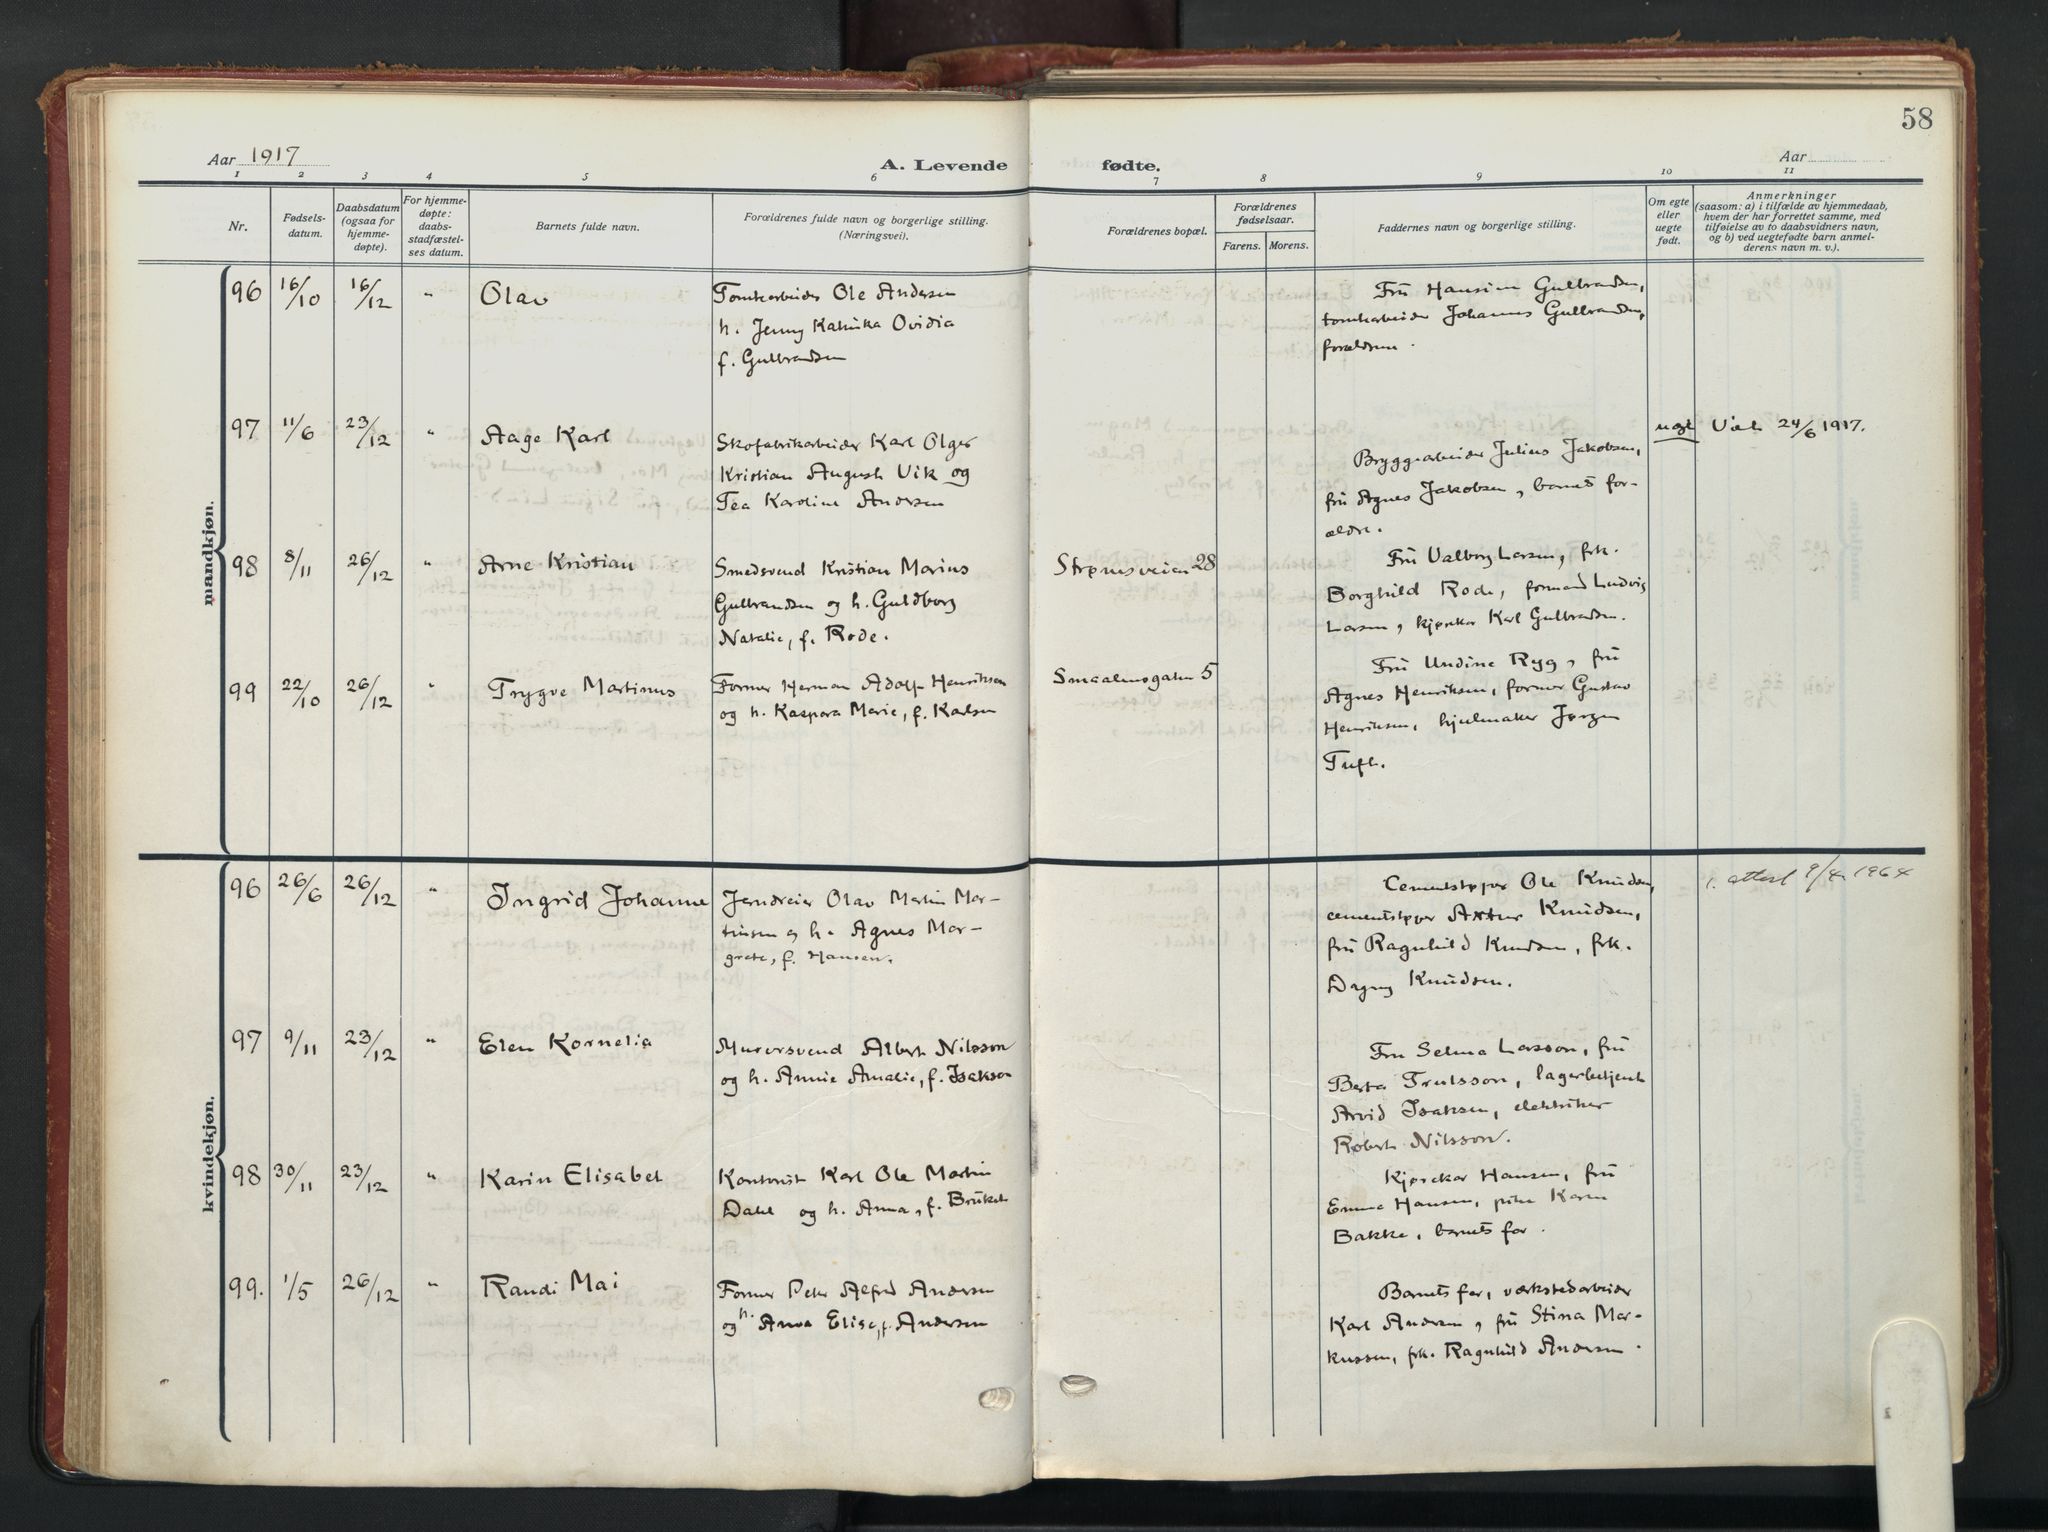 58
Aar 1917
A. Levende
fødte.
Aar
1 2 3 4 5 6 7 8 9 10 11
Nr.
Fødsels-
datum.
Daabsdatum
(ogsaa for
hjemme-
døpte).
For hjemme-
døpte:
daabs-
stadfæstel-
ses datum.
Barnets fulde navn.
Forældrenes fulde navn og borgerlige stilling.
(Næringsvei).
Forældrenes bopæl.
Forældrenes
fødselsaar.
Farens. Morens.
Faddernes navn og borgerlige stilling.
Om egte
eller
uegte
født.
Anmerkninger
(saasom: a) i tilfælde av hjemmedaab,
hvem der har forrettet samme, med
tilføielse av to daabsvidners navn,
og b) ved uegtefødte barn anmel-
derens navn m. v.).
mandkjøn.
96 16/10 16/12 " Olav
Tomtearbeider Ole Andersen
h. Jenny Katinka Ovidia
f. Gulbrandsen
Fru Hansine Gulbrandsen,
tomtearbeider Johannes Gulbrandsen,
forældrene.
97 11/6 23/12 " Aage Karl
Skofabrikarbeider Karl Olger
Kristian August Vik og
Tea Karoline Andersen
Bryggearbeider Julius Jakobsen,
fru Agnes Jakobsen, barnets for-
ældre.
uegte
24/6 1917.
98 8/11 26/12 " Arne Kristian
Smedsvend Kristian Marius
Gulbrandsen og h. Guldborg
Natalie, f. Rode.
Strømsveien 28
Fru Valborg Larsen, frk.
Borghild Rode, formand Ludvig
Larsen, kjørekar Karl Gulbrandsen.
99 22/10 26/12 " Trygve Martinus
Former Herman Adolf Henriksen
og h. Kaspara Marie, f. Karlsen
Smaalensgaten 5
Fru Undine Ryg, fru
Agnes Henriksen, former Gustav
Henriksen, hjulmaker Jørgen
Tuft.
kvindekjøn.
96 26/6 26/12 " Ingrid Johanne
Jerndreier Olav Martin Mar-
tinsen og h. Agnes Mar-
grete, f. Hansen.
Cementstøper Ole Knudsen,
cementstøper Artur Knudsen,
fru Ragnhild Knudsen, frk.
Dagny Knudsen.
1. attest 9/4 1964
97 9/11 23/12 " Elen Kornelia
Murersvend Albert Nilsson
og h. Annie Amalie, f. Isakson
Fru Selma Larsson, fru
Berta Trulsson, lagerbetjent
Arvid Isaksen, elektriker
Robert Nilsson.
98 30/11 23/12 " Karin Elisabet
Kontorist Karl Ole Martin
Dahl og h. Anna, f. Bruket
Kjørekar Hansen, fru
Emma Hansen, pike Karen
Bakke, barnets far.
99. 1/5 26/12 " Randi Mai
Former Peter Alfred Andersen
og h. Anna Elise, f. Andersen
Barnets far, verkstedarbeider
Karl Andersen, fru Stina Mar-
kussen, frk. Ragnhild Andersen.